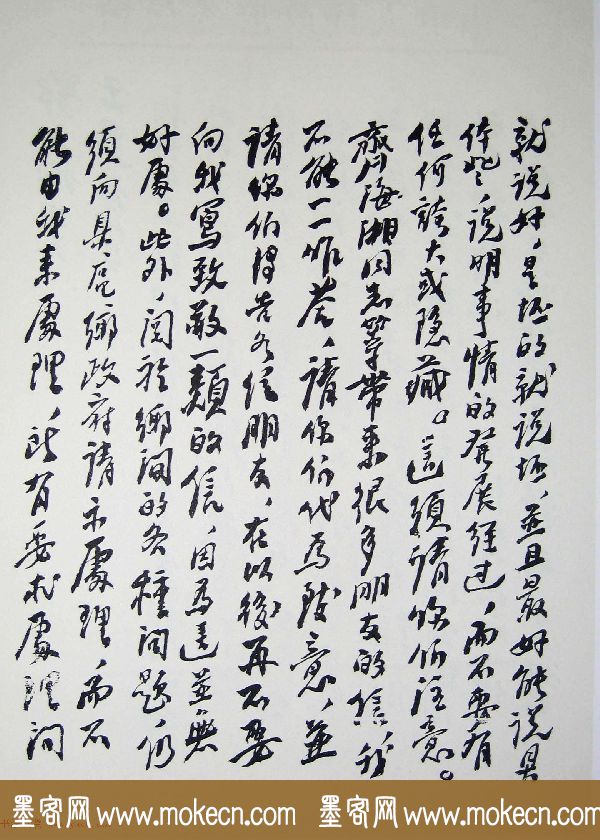 就说好，是坏的就说坏，并且最好能说具
体些，说明事情的发展经过，而不要有
任何誇大或隐藏。这须请你们注意。
齊海湘同志等带来很多朋友的信，我
不能一一作答，请你们代为致意，並
请你们转告各位朋友，在以後再不要
向我寫致敬一類的信，因为这並無
好處。此外，関於鄉间的各種问题，仍
须向县區鄉政府请示處理，而不
能由我来處理，所有要求處理问
墨客网 www.mokecn.com 墨客网 www.mokecn.com